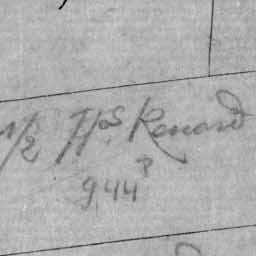 1/2 Hps Renard
944 P